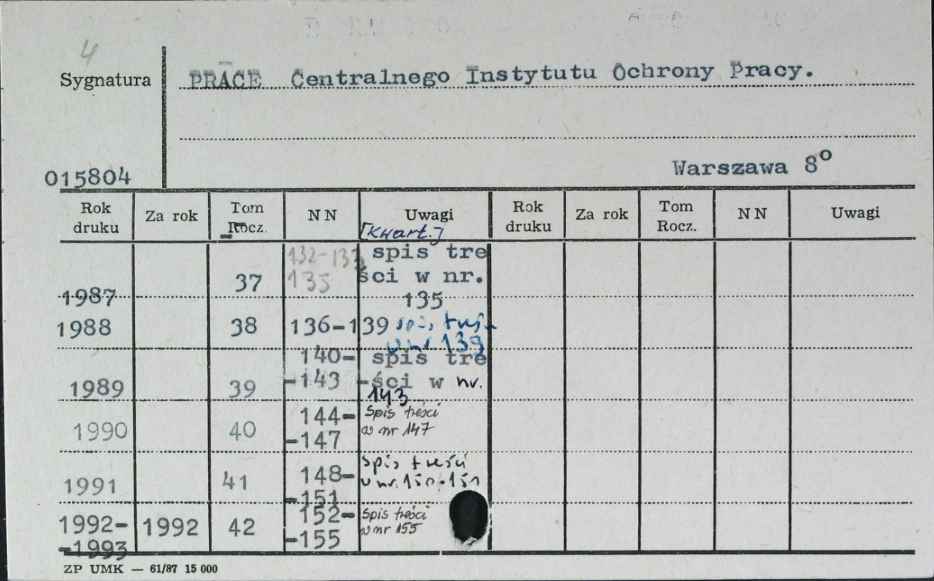 4
Sygnatura PRACE Centralnego Instytutu Ochrony Pracy.
015804 Warszawa 8°
Rok druku Za rok Tom Rocz. NN Uwagi Rok druku Za rok Tom Rocz. NN Uwagi
[Kwart.]
1987 37 132-133 135 spis tre
ści w nr.
135
1988 38 136-139 spis treś-
w nr 139
1989 39 140- spis tre
-143 -ści w nr.
143
1990 40 144- Spis treści
-147 w nr 147
1991 41 148- spis treści
-151 w nr. 150-151
1992- 1992 42 152- Spis treści
-1993 -155 w nr 155
ZP UMK — 61/87 15 000